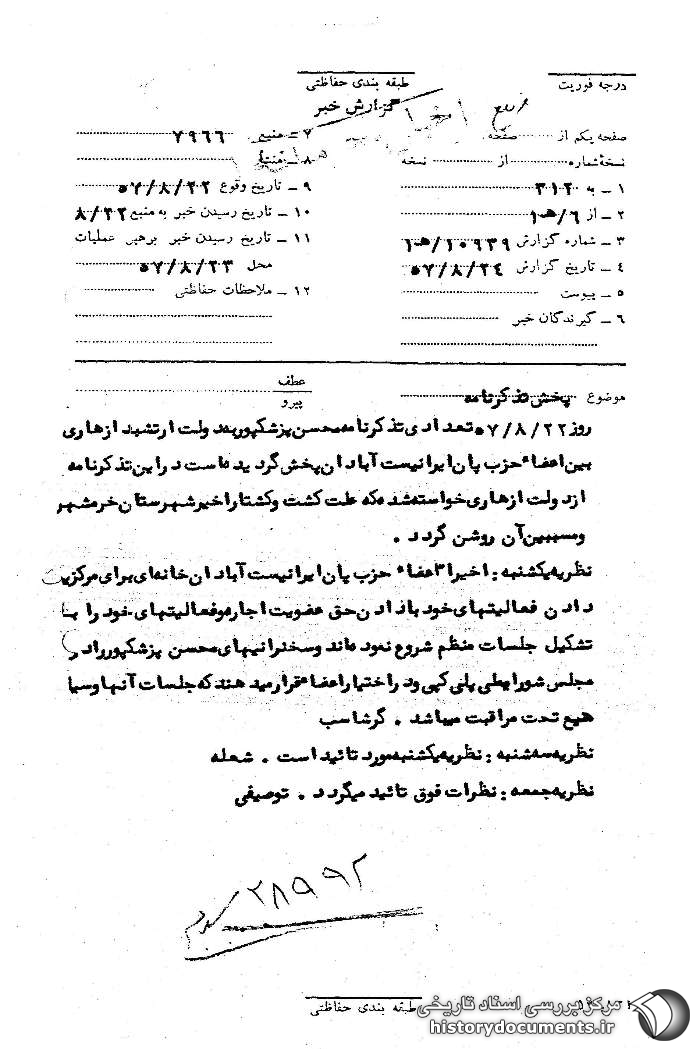 درجه فوریت
طبقه بندی حفاظتی
گزارش خبر
صفحه یکم از صفحه
نسخهٔ شماره از نسخه
۱ – به ۳۱۲
۲ – از ۱۰ﻫ/۶
۳ – شماره گزارش ۱۰۹۳۹/۱۰ﻫ
۴ – تاریخ گزارش ۵۷/۸/۲۴
۵ – پیوست
۶ – گیرندگان خبر
۷ – منبع ۷۹۶۶
۸ – منشاء
۹ – تاریخ وقوع ۵۷/۸/۲۲
۱۰ – تاریخ رسیدن خبر به منبع ۸/۲۲
۱۱ – تاریخ رسیدن خبر برهبر عملیات
محل ۵۷/۸/۲۳
۱۲ – ملاحظات حفاظتی
موضوع پخش تذکرنامه
عطف
پیرو
روز ۵۷/۸/۲۲ تعدادی تذکرنامه محسن پزشکپور به دولت ارتشبد ازهاری
بین اعضاء حزب پان ایرانیست آبادان پخش گردیده است در این تذکرنامه
از دولت ازهاری خواسته شده که علت کشت و کشتار اخیر شهرستان خرمشهر
و مسببین آن روشن گردد .
نظریه یکشنبه : اخیرا اعضاء حزب پان ایرانیست آبادان خانه ای برای مرکزیت
دادن فعالیتهای خود با دادن حق عضویت اجاره و فعالیتهای خود را با
تشکیل جلسات منظم شروع نموده اند و سخنرانیهای محسن پزشکپور را در
مجلس شورا بطی پلی کپی و در اختیار اعضاء قرار میدهند که جلسات آنها وسیله
هیع تحت مراقبت میباشد . گرشاسب
نظریه سه شنبه : نظریه یکشنبه مورد تائید است . شعله
نظریه جمعه : نظرات فوق تائید میگردد . توصیفی
۲۸۹۹۲
طبقه بندی حفاظتی
مرکز بررسی اسناد تاریخی
historydocuments.ir